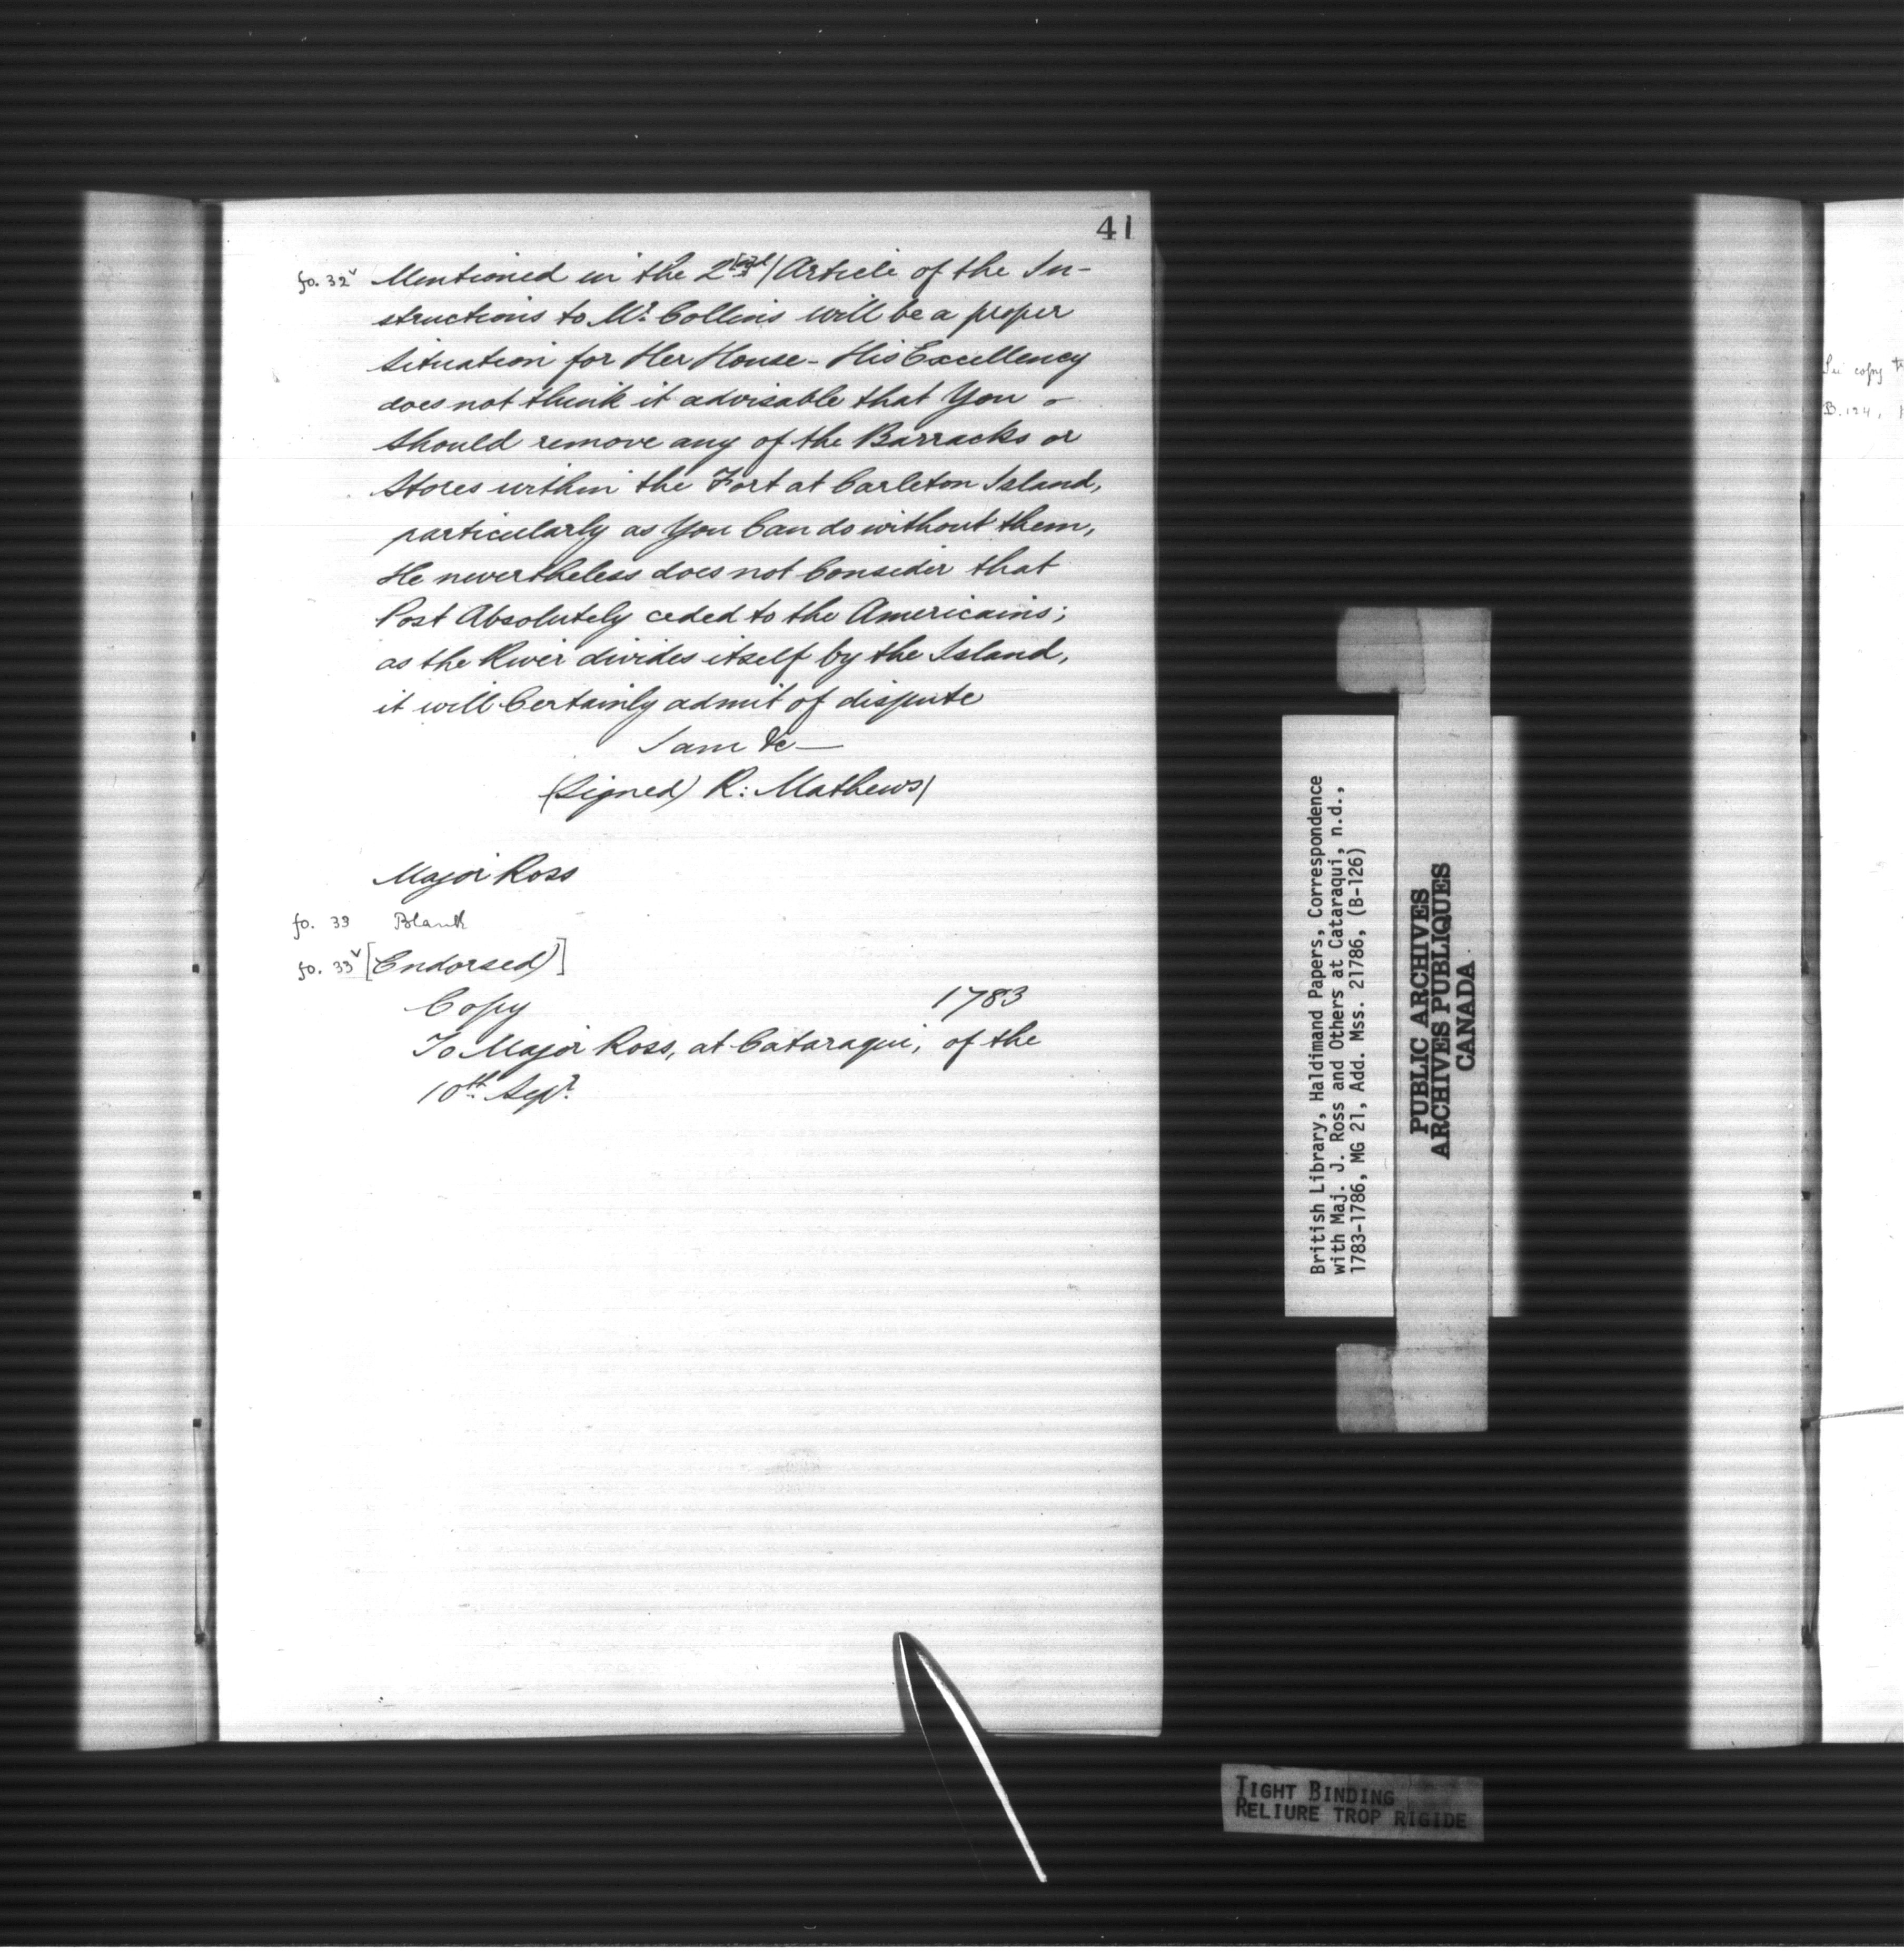 41
fo. 32v Mentioned in the 2[nd] Article of the In-
structions to Mr. Collins will be a proper
Situation for Her House - His Excellency
does not think it advisable that You -
Should remove any of the Barracks or
Stores within the Fort at Carleton Island,
particularly as You Can do without them,
He nevertheless does not Consider that
Post Absolutely ceded to the Americains;
as the River divides itself by the Island,
it will Certainly admit of dispute
I am &c—
(Signed) R: Mathews)
Major Ross
fo. 33 Blank
fo. 33v [Endorsed)]
Copy 1783
To Major Ross, at Cataraqui, of the
10th Sepr.
British Library, Haldimand Papers, Correspondence
with Maj. J. Ross and Others at Cataraqui, n.d.,
1783-1786, MG 21, Add. Mss. 21786, (B-126)
PUBLIC ARCHIVES
ARCHIVES PUBLIQUES
CANADA
TIGHT BINDING
RELIURE TROP RIGIDE
See copy
B. 124,